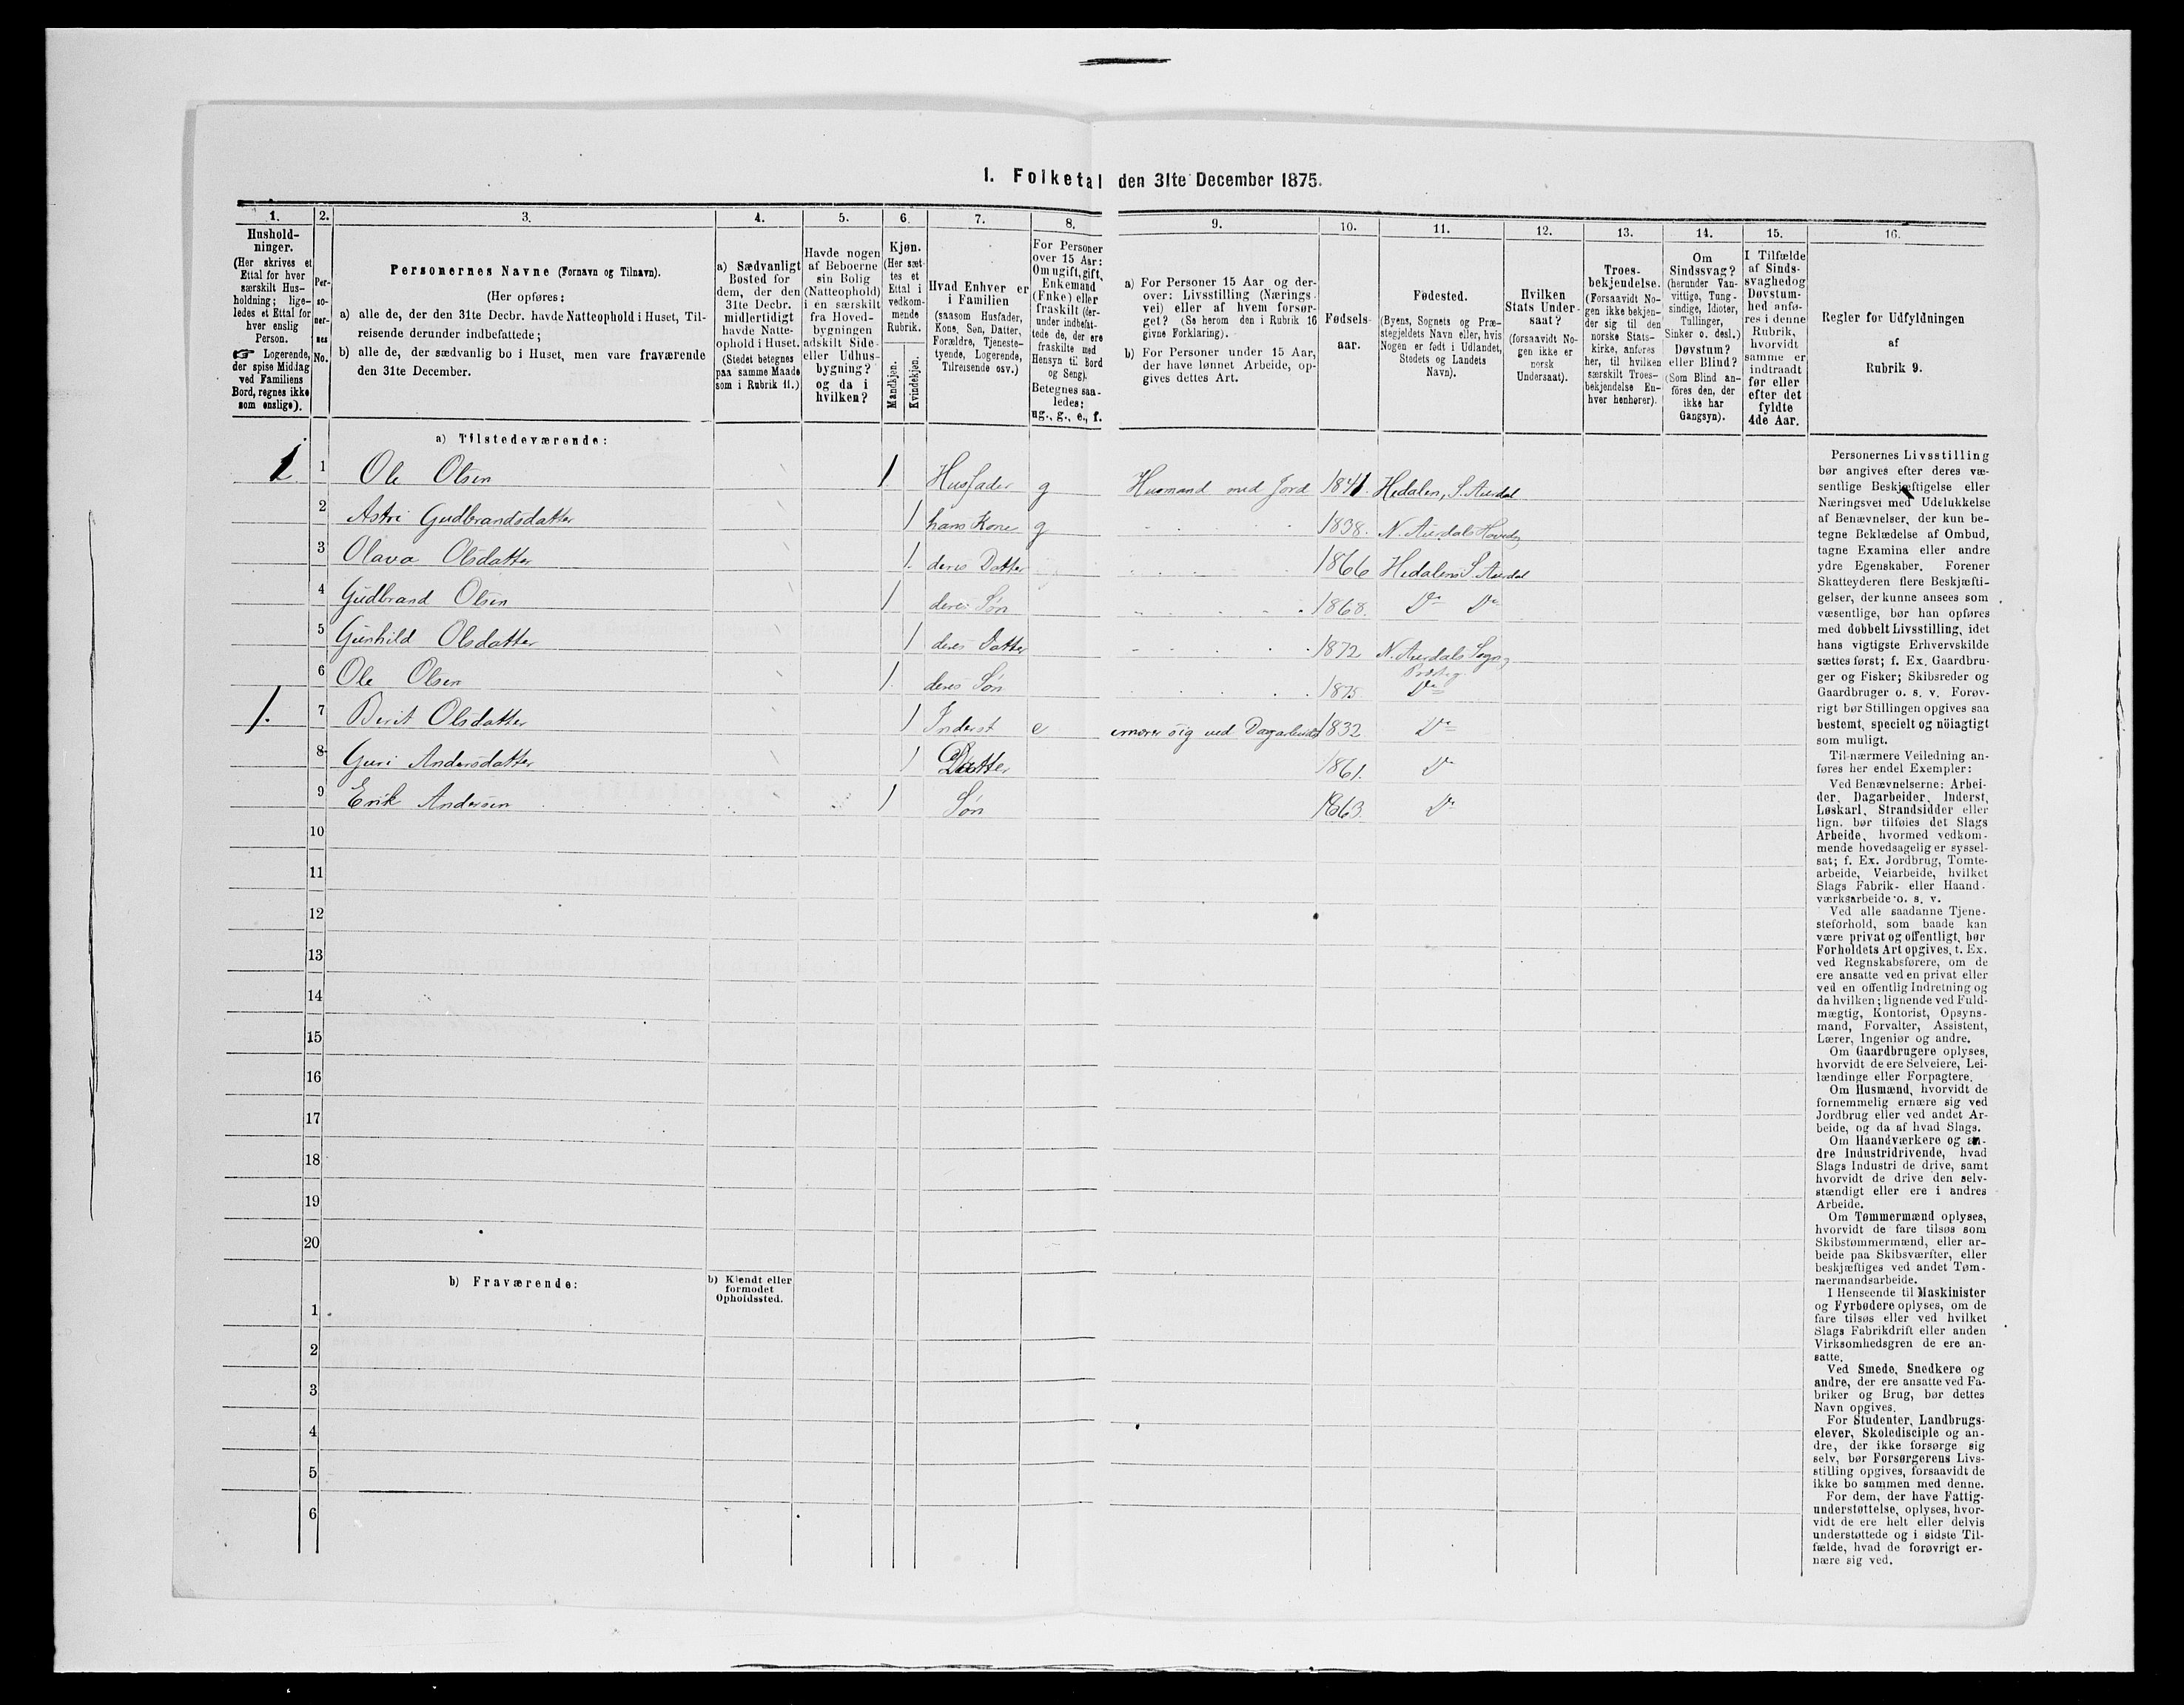 1. Folketal den 31te December 1875.
1. 2. 3. 4. 5. 6. 7. 8. 9. 10. 11. 12. 13. 14. 15. 16.
Hushold-
ninger.
(Her skrives et
Ettal for hver
særskilt Hus-
holdning; lige-
ledes et Ettal for
hver enslig
Person.
☞ Logerende,
der spise Middag
ved Familiens
Bord, regnes ikke
som enslige).
Per-
so-
ner-
nes
No.
Personernes Navne (Fornavn og Tilnavn).
(Her opføres:
a) alle de, der den 31te Decbr. havde Natteophold i Huset, Til-
reisende derunder indbefattede;
b) alle de, der sædvanlig bo i Huset, men vare fraværende
den 31te December.
a) Sædvanligt
Bosted for
dem, der den
31te Decbr.
midlertidigt
havde Natte-
ophold i Huset.
(Stedet betegnes
paa samme Maade
som i Rubrik 11.)
Havde nogen
af Beboerne
sin Bolig
(Natteophold)
i en særskilt
fra Hoved-
bygningen
adskilt Side-
eller Udhus-
bygning?
og da i
hvilken?
Kjøn.
(Her sæt-
tes et
Ettal i
vedkom-
mende
Rubrik.
Mandkjøn.
Kvindekjøn.
Hvad Enhver er
i Familien
(saasom Husfader,
Kone, Søn, Datter,
Forældre, Tjeneste-
tyende, Logerende,
Tilreisende osv.)
For Personer
over 15 Aar:
Om ugift, gift,
Enkemand
(Enke) eller
fraskilt (der-
under indbefat-
tede de, der ere
fraskilte med
Hensyn til Bord
og Seng).
Betegnes saa-
ledes:
ug., g., e., f.
a) For Personer 15 Aar og der-
over: Livsstilling (Nærings-
vei) eller af hvem forsør-
get? (Se herom den i Rubrik 16
givne Forklaring).
b) For Personer under 15 Aar,
der have lønnet Arbeide, op-
gives dettes Art.
Fødsels-
aar.
Fødested.
(Byens, Sognets og Præ-
stegjeldets Navn eller, hvis
Nogen er født i Udlandet,
Stedets og Landets
Navn).
Hvilken
Stats Under-
saat?
(forsaavidt No-
gen ikke er
norsk
Undersaat).
Troes-
bekjendelse.
(Forsaavidt No-
gen ikke bekjen-
der sig til den
norske Stats-
kirke, anføres
her, til hvilken
særskilt Troes-
bekjendelse En-
hver henhører).
Om
Sindssvag?
(herunder Van-
vittige, Tung-
sindige, Idioter,
Tullinger,
Sinker o. desl.)
Døvstum?
eller Blind?
(Som Blind an-
føres den, der
ikke har
Gangsyn).
I Tilfælde
af Sinds-
svaghed og
Døvstum-
hed anfø-
res i denne
Rubrik,
hvorvidt
samme er
indtraadt
før eller
efter det
fyldte
4de Aar.
Regler for Udfyldningen
af
Rubrik 9.
a) Tilstedeværende:
1 1 Ole Olsen 1 Husfader g Husmand med Jord 1841. Hedalen, S. Aurdal
2 Astri Gudbrandsdatter 1 hans Kone g 1838. N. Aurdals
3 Olava Olsdatter 1. deres Datter 1866 Hedalens S. Aurdal
4 Gudbrand Olsen 1 deres Søn 1868. Do Do
5 Gunhild Olsdatter 1 deres Datter 1872 N. Aurdals Sogn
Præsteg.
6 Ole Olsen 1. deres Søn 1875 Do
1. 7 Berit Olsdatter 1 Inderst e ernærer sig ved Dagarbeide 1832 Do
8 Guri Andersdatter 1 Datter 1861. Do
9 Erik Andersen 1 Søn 1863. Do
10
11
12
13
14
15
16
17
18
19
20
b) Fraværende: b) Kjendt eller
formodet
Opholdssted.
1
2
3
4
5
6
Personernes Livsstilling
bør angives efter deres væ-
sentlige Beskjæftigelse eller
Næringsvei med Udelukkelse
af Benævnelser, der kun be-
tegne Beklædelse af Ombud,
tagne Examina eller andre
ydre Egenskaber. Forener
Skatteyderen flere Beskjæfti-
gelser, der kunne ansees som
væsentlige, bør han opføres
med dobbelt Livsstilling, idet
hans vigtigste Erhvervskilde
sættes først; f. Ex. Gaardbru-
ger og Fisker; Skibsreder og
Gaardbruger o. s. v. Forøv-
rigt bør Stillingen opgives saa
bestemt, specielt og nöiagtigt
som muligt.
Til nærmere Veiledning an-
føres her endel Exempler:
Ved Benævnelserne: Arbei-
der, Dagarbeider, Inderst,
Løskarl, Strandsidder eller
lign. bør tilføies det Slags
Arbeide, hvormed vedkom-
mende hovedsagelig er syssel-
sat; f. Ex. Jordbrug, Tomte-
arbeide, Veiarbeide, hvilket
Slags Fabrik- eller Haand-
værksarbeide o. s. v.
Ved alle saadanne Tjene-
steforhold, som baade kan
være privat og offentligt, bør
Forholdets Art opgives, t. Ex.
ved Regnskabsførere, om de
ere ansatte ved en privat eller
ved en offentlig Indretning og
da hvilken; lignende ved Fuld-
mægtig, Kontorist, Opsyns-
mand, Forvalter, Assistent,
Lærer, Ingeniør og andre.
Om Gaardbrugere oplyses,
hvorvidt de ere Selveiere, Lei-
lændinge eller Forpagtere.
Om Husmænd, hvorvidt de
fornemmelig ernære sig ved
Jordbrug eller ved andet Ar-
beide, og da af hvad Slags.
Om Haandværkere og an-
dre Industridrivende, hvad
Slags Industri de drive, samt
hvorvidt de drive den selv-
stændigt eller ere i andres
Arbeide.
Om Tømmermænd oplyses,
hvorvidt de fare tilsøs som
Skibstømmermænd, eller ar-
beide paa Skibsværfter, eller
beskjæftiges ved andet Tøm-
mermandsarbeide.
I Henseende til Maskinister
og Fyrbødere oplyses, om de
fare tilsøs eller ved hvilket
Slags Fabrikdrift eller anden
Virksomhedsgren de ere an-
satte.
Ved Smede, Snedkere og
andre, der ere ansatte ved Fa-
briker og Brug, bør dettes
Navn opgives.
For Studenter, Landbrugs-
elever, Skoledisciple og an-
dre, der ikke forsørge sig
selv, bør Forsørgerens Livs-
stilling opgives, forsaavidt de
ikke bo sammen med denne.
For dem, der have Fattig-
understøttelse, oplyses, hvor-
vidt de ere helt eller delvis
understøttede og i sidste Til-
fælde, hvad de forøvrigt er-
nære sig ved.